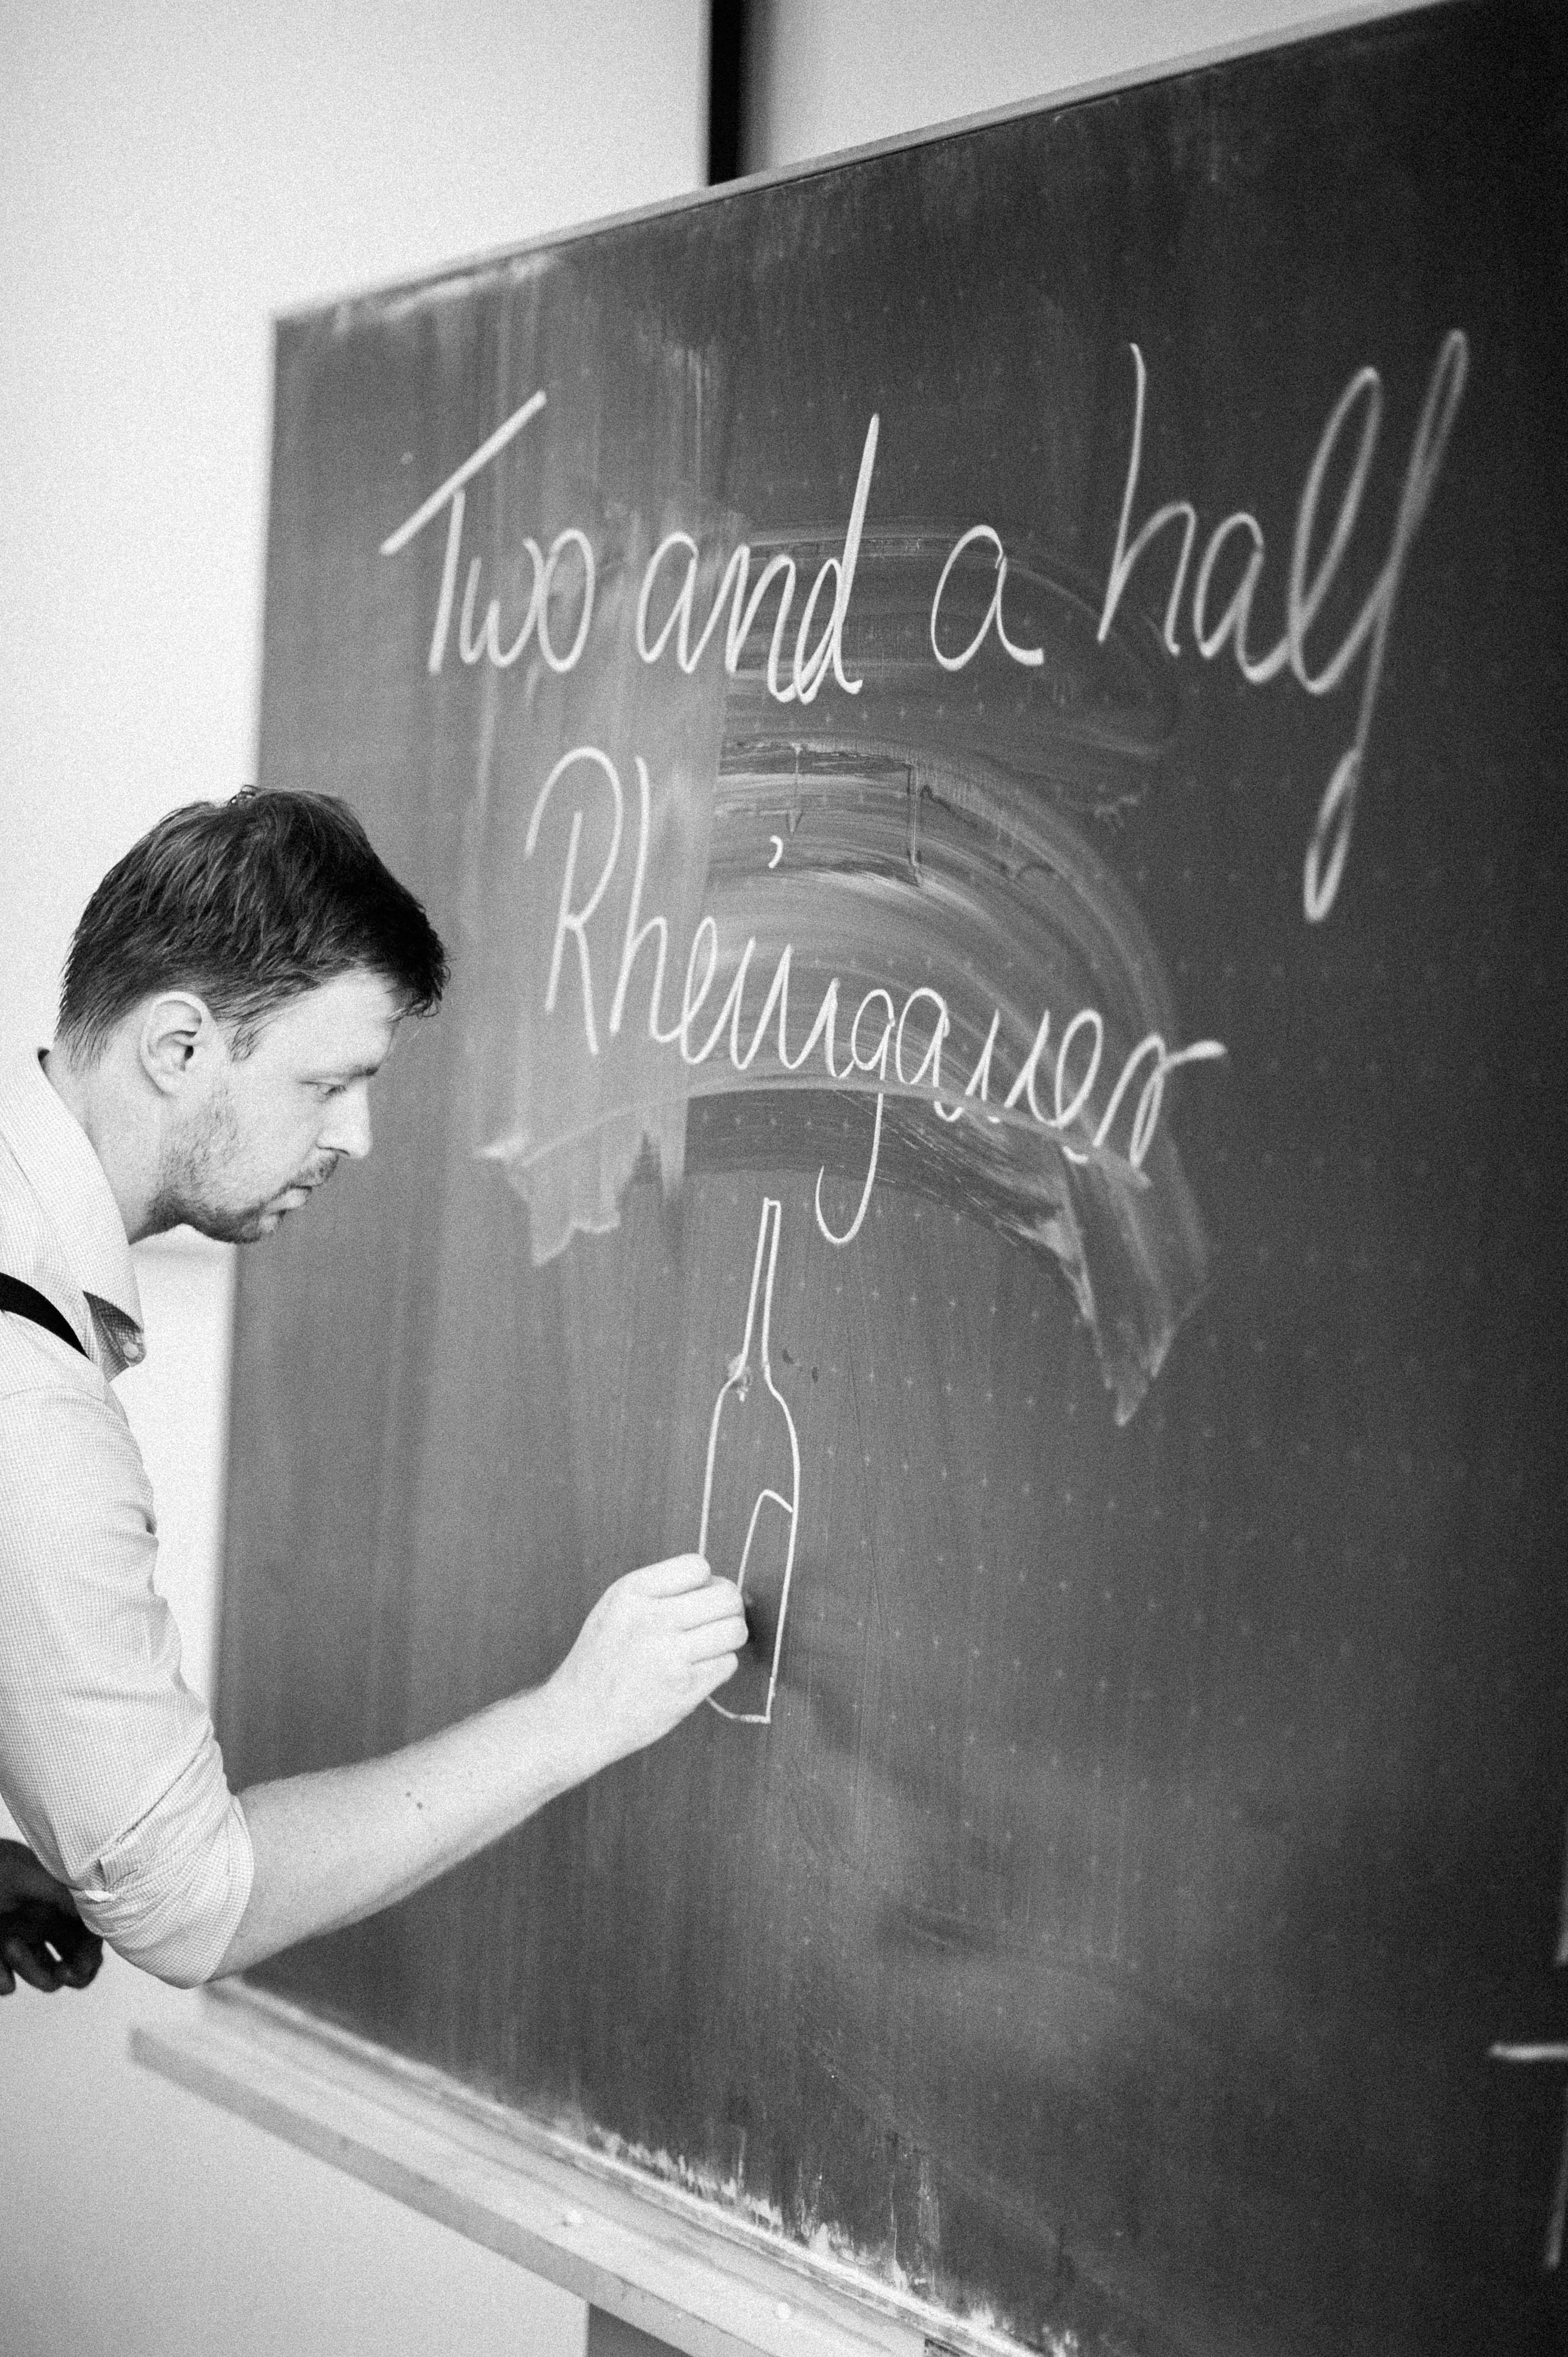 Two and a half
Rheingauer